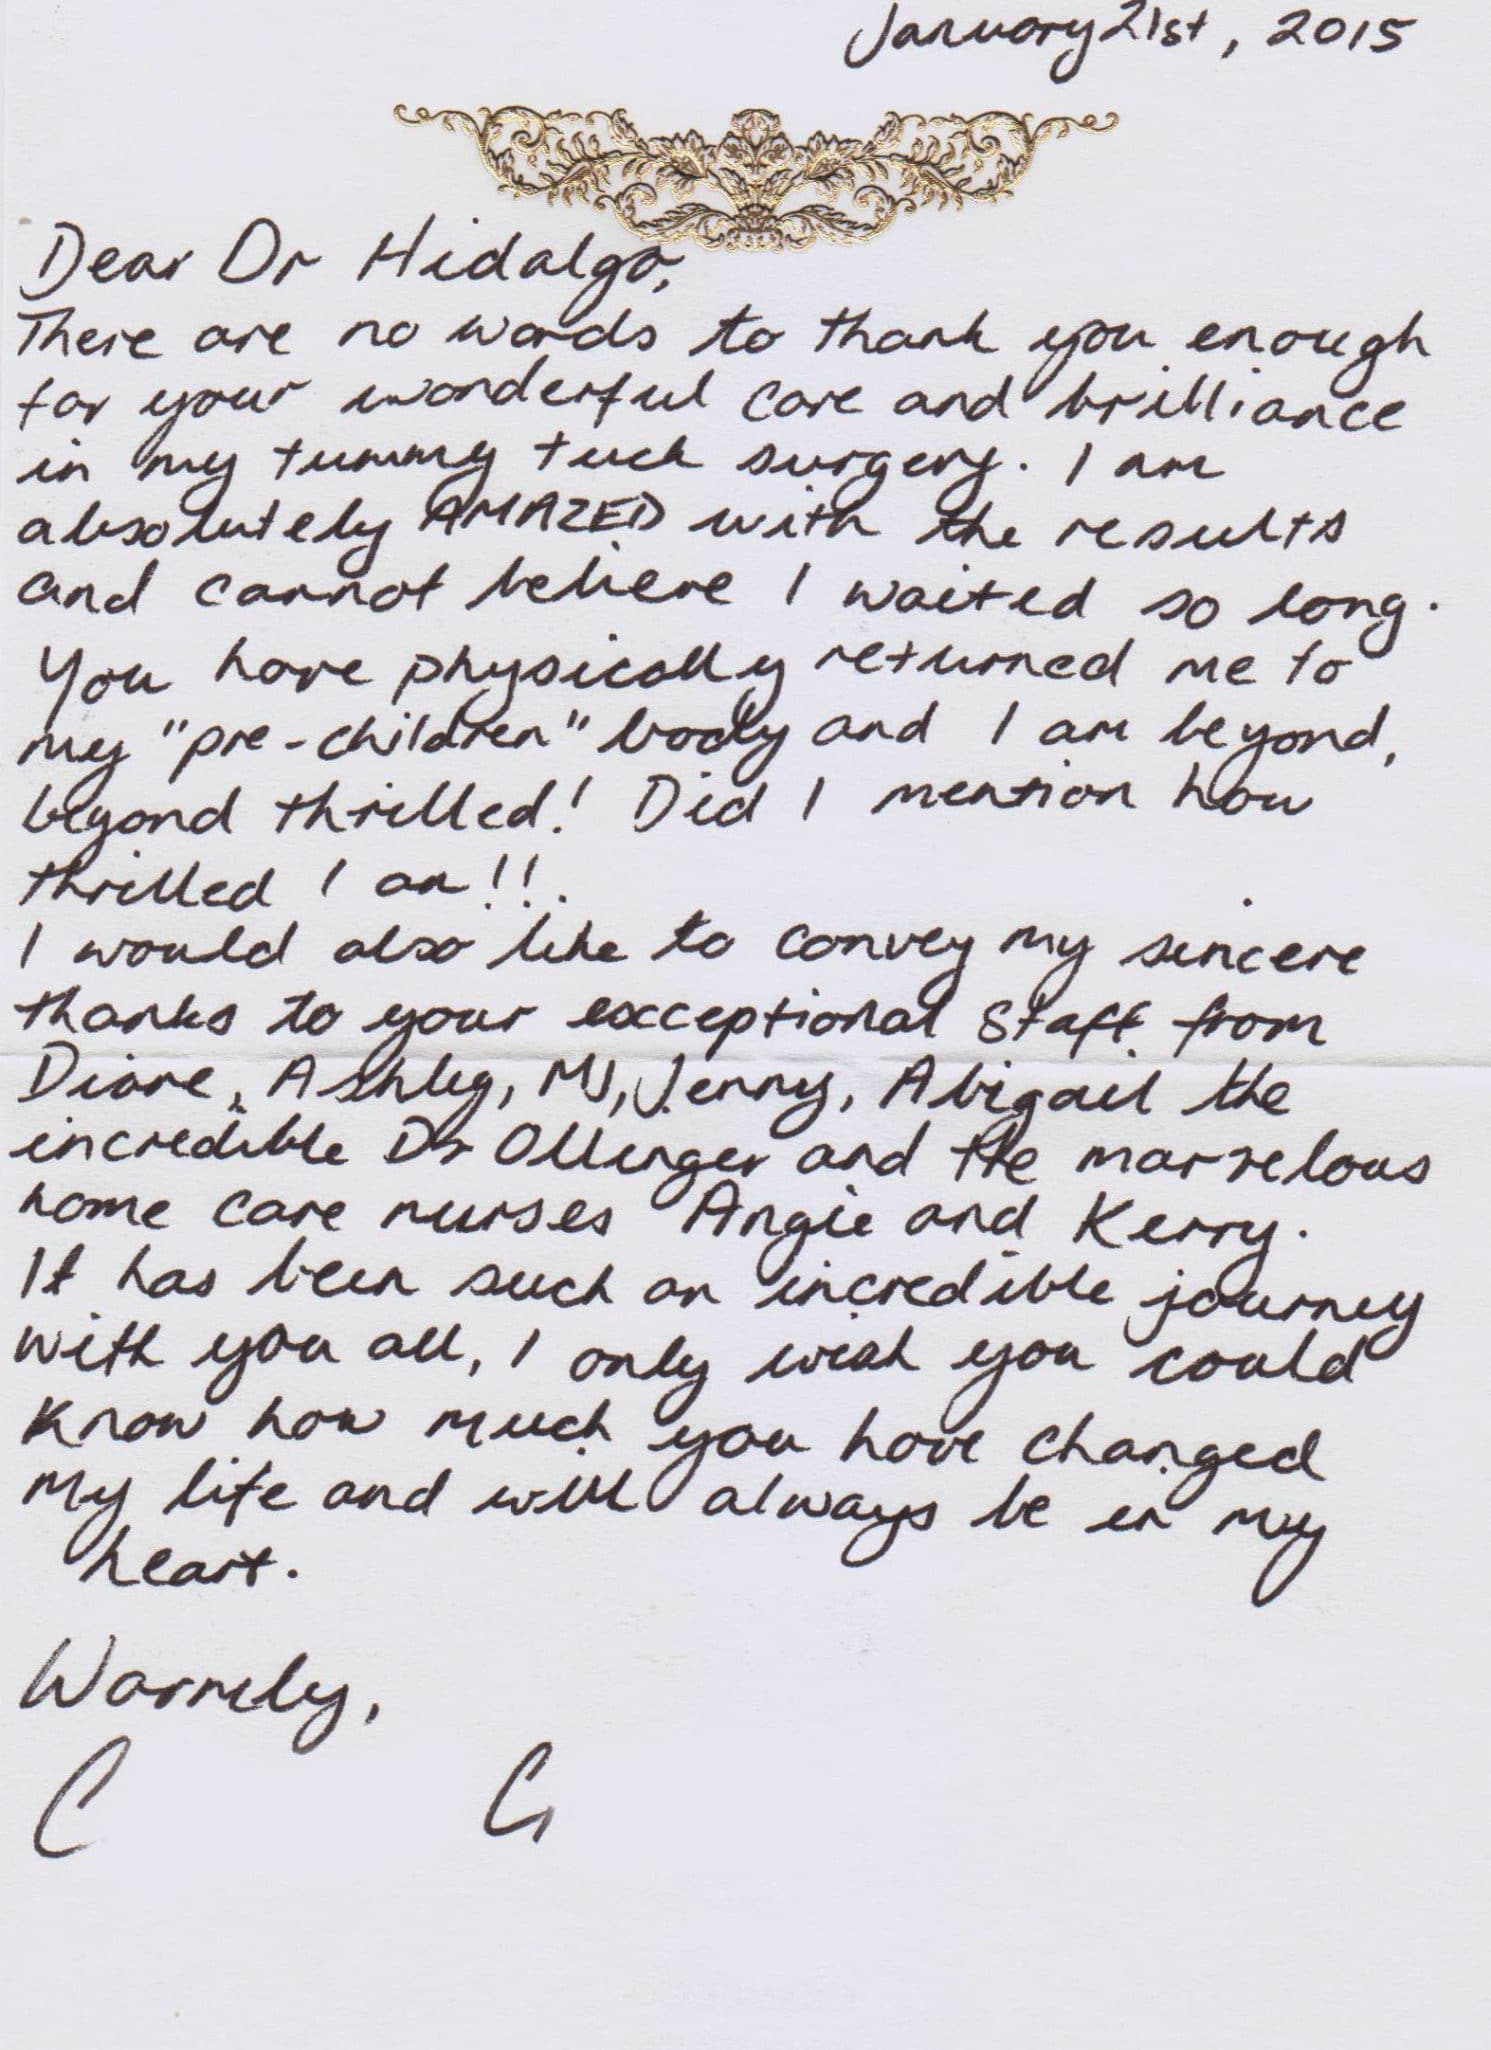 January 21st, 2015
Dear Dr Hidalgo,
There are no words to thank you enough
for your wonderful care and brilliance
in my tummy tuck surgery. I am
absolutely AMAZED with the results
and cannot believe I waited so long.
You have physically returned me to
my "pre-children" body and I am beyond,
beyond thrilled! Did I mention how
thrilled I am!!
I would also like to convey my sincere
thanks to your exceptional staff from
Diane, Ashley, MJ, Jenny, Abigail the
incredible Dr Ollinger and the marvelous
home care nurses Angie and Kerry.
It has been such an incredible journey
with you all, I only wish you could
know how much you have changed
my life and will always be in my
heart.
Warmly,
C G